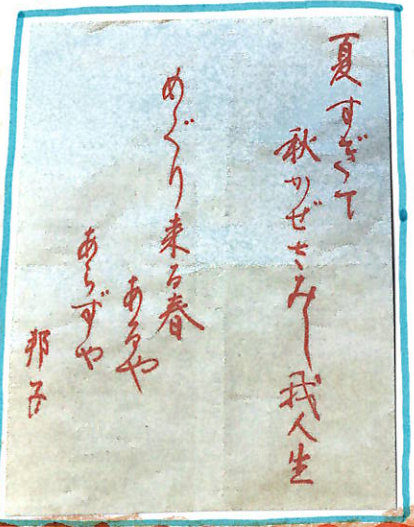 夏すぎて
秋かぜさみし我人生
めぐり来る春
あるや
あらずや
邦子